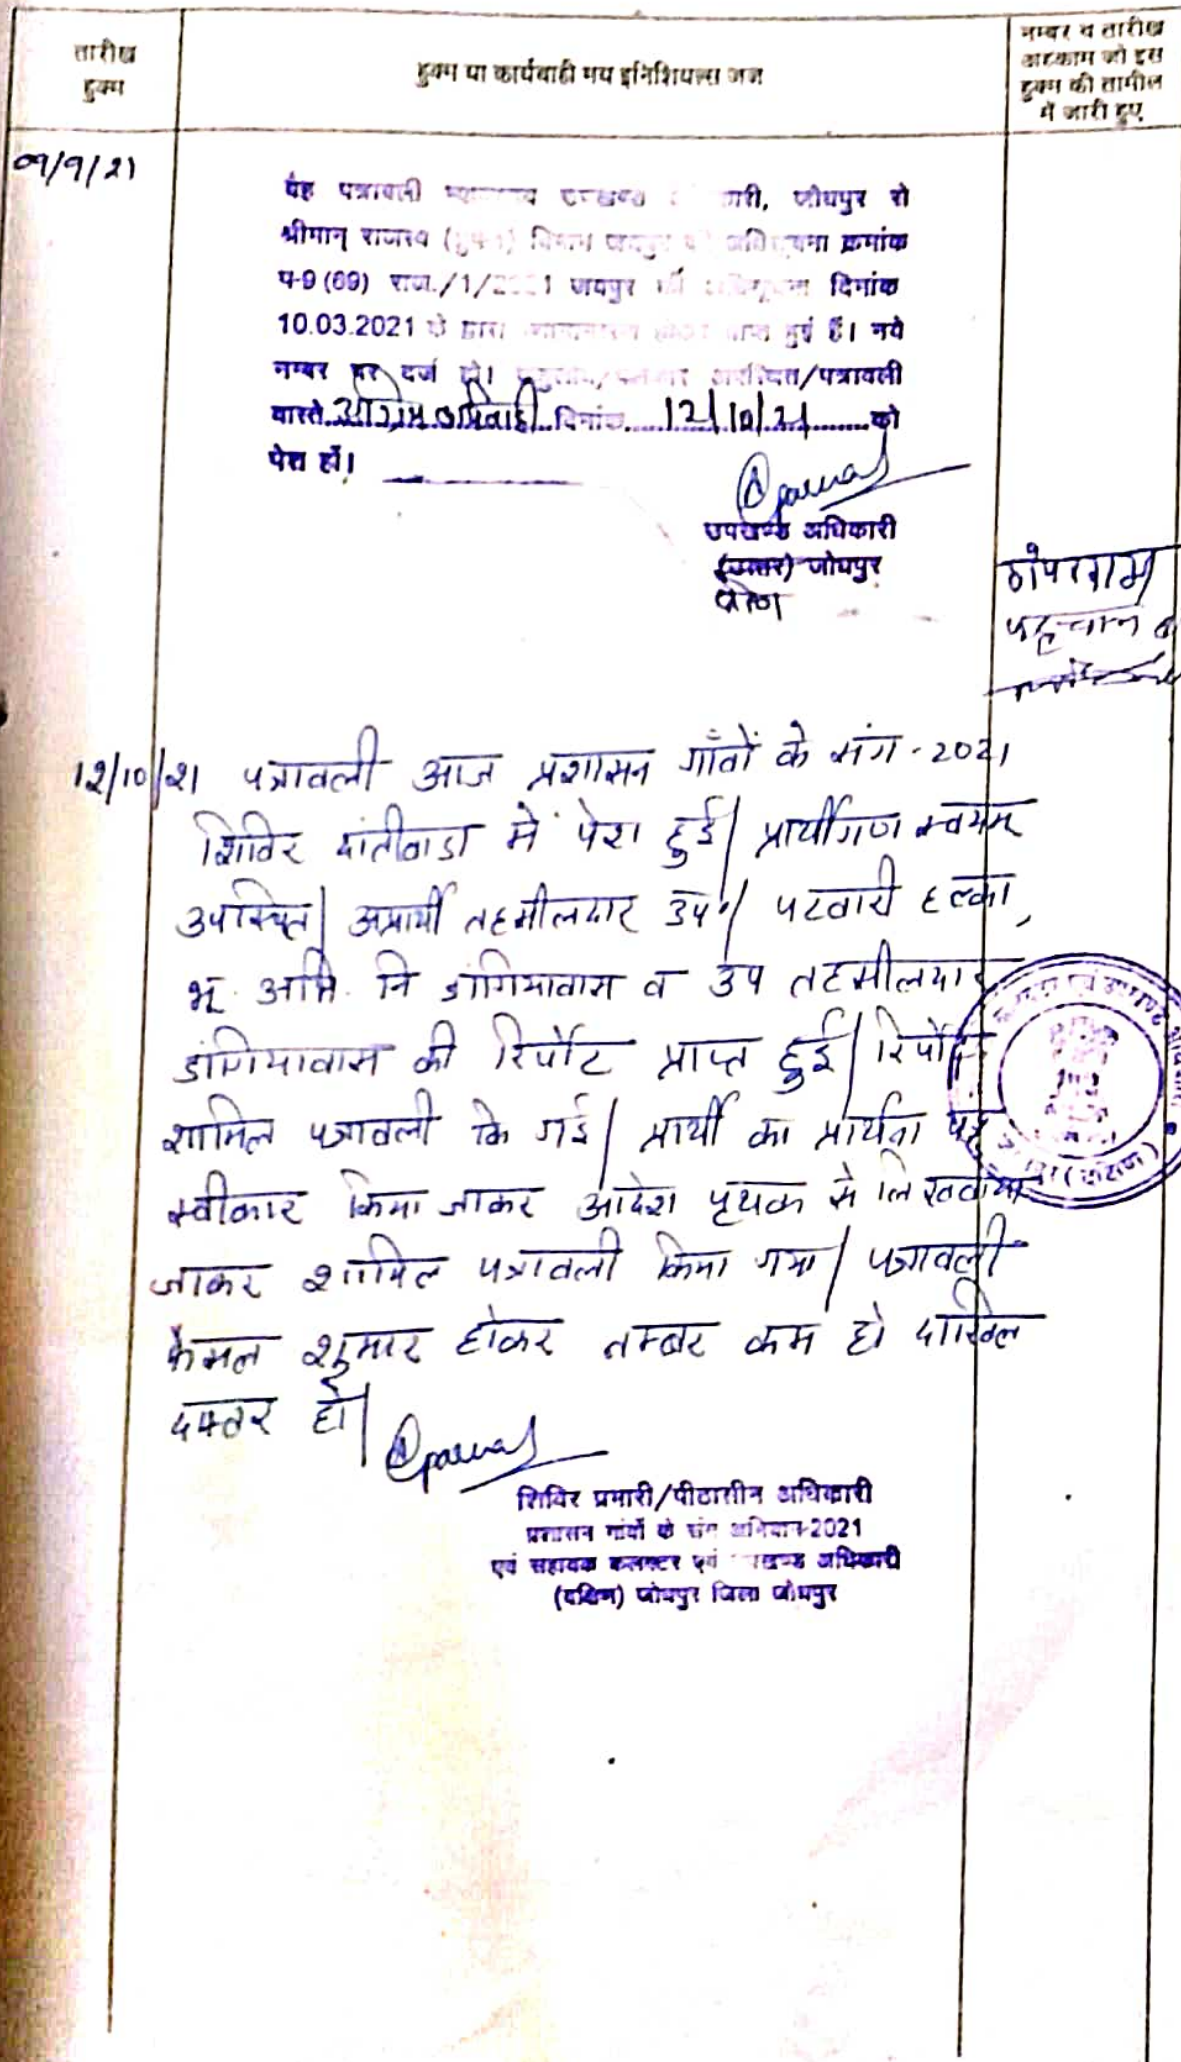 तारीख
हुक्म
हुक्म या कार्यवाही मय इनिशियल्स जज
नम्बर व तारीख
अहकाम जो इस
हुक्म की तामील
में जारी हुए
09/9/21
यह पत्रावली जोधपुर से
श्रीमान् राजस्व क्रमांक
प-9 (69) राज./1/2021 जयपुर दिनांक
10.03.2021 के द्वारा प्राप्त हुई हैं। नये
नम्बर पर दर्ज हो। /पत्रावली
वास्ते दिनांक 12/10/21 को
पेश हों।
उपखण्ड अधिकारी
(उत्तर) जोधपुर
12/10/21 पत्रावली आज प्रशासन गाँवों के संग - 2021
शिविर दांतीवाडा में पेश हुई। प्रार्थीगण स्वयम्
उपस्थित। अप्रार्थी तहसीलदार उप॰। पटवारी हल्का,
भू. अभि. नि डांगियावास व उप तहसीलदार
डांगियावास की रिर्पोट प्राप्त हुई। रिर्पोट
शामिल पत्रावली कि गई। प्रार्थी का प्रार्थना पत्र
स्वीकार किया जाकर आदेश पृथक से लिखवाया
जाकर शामिल पत्रावली किया गया। पत्रावली
फैसल शुमार होकर नम्बर कम हो दाखिल
दफ्तर हो।
शिविर प्रभारी/पीठासीन अधिकारी
प्रशासन गांवों के संग अभियान-2021
एवं सहायक कलक्टर एवं उपखण्ड अधिकारी
(दक्षिण) जोधपुर जिला जोधपुर